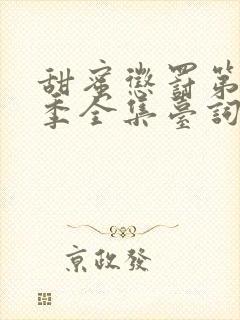 甜蜜懲罰第
季全集臺詞
京政發